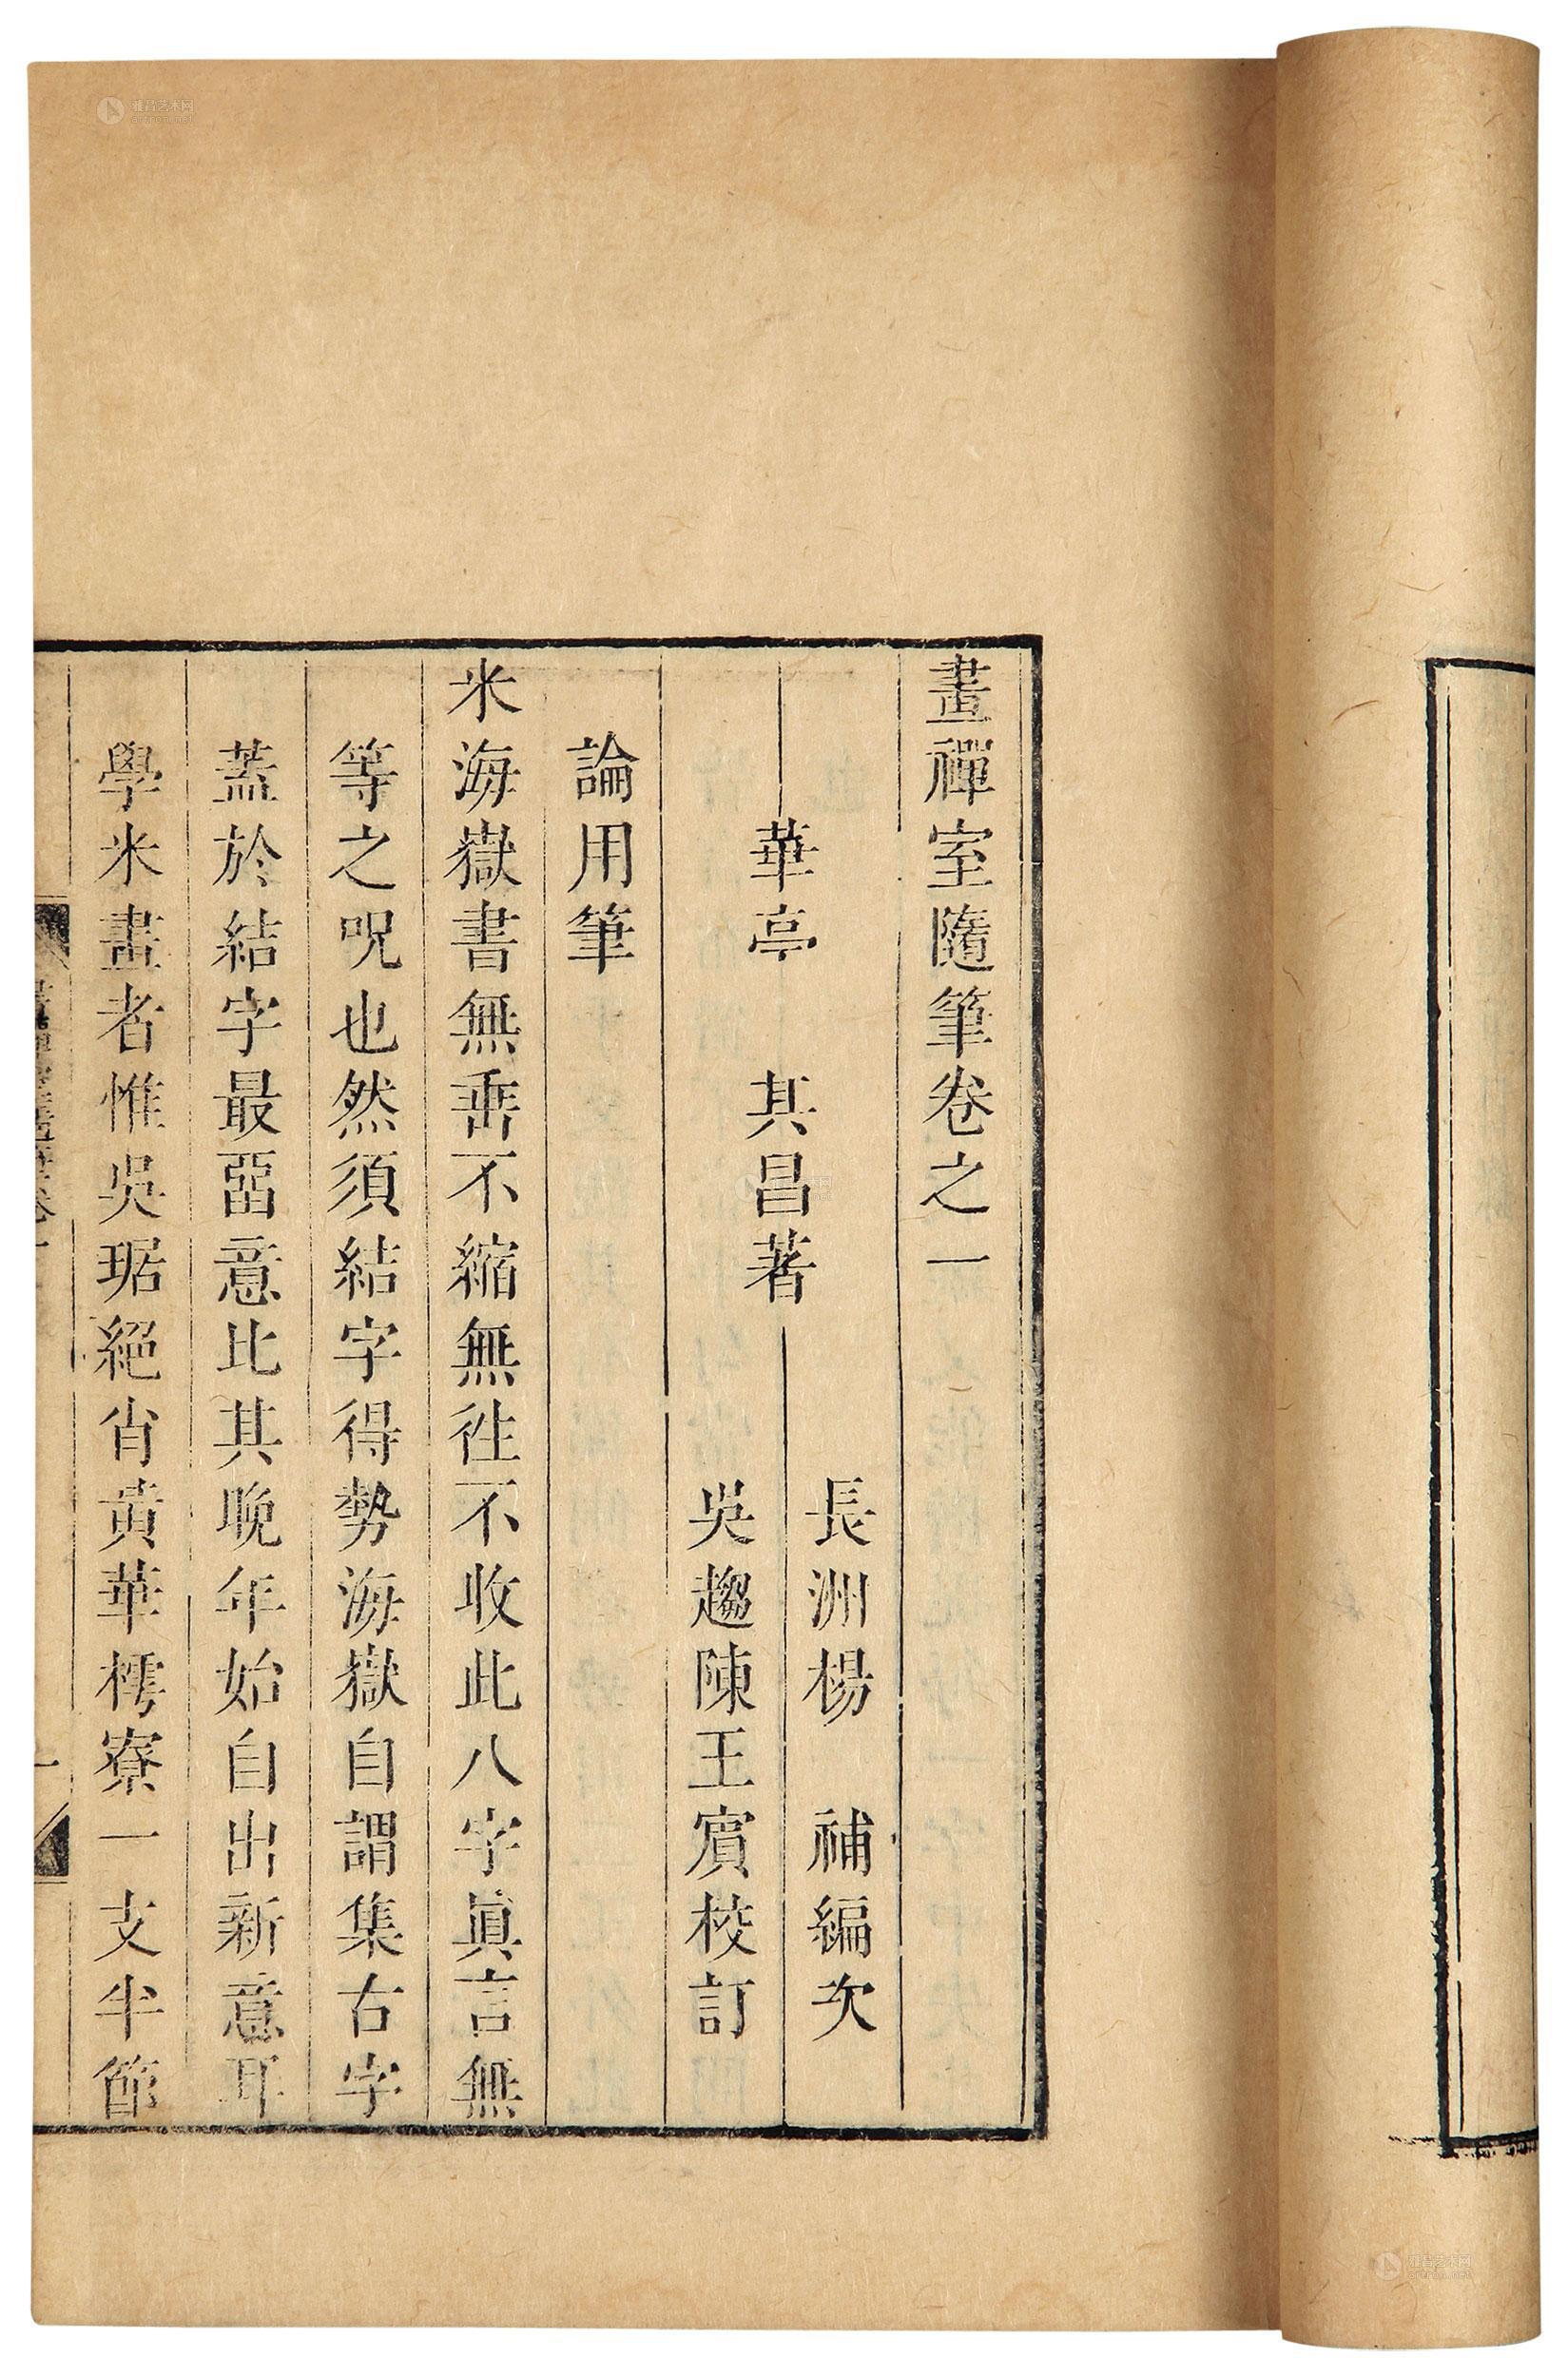 畫禪室隨筆卷之一
長洲楊　補編次
華亭　其昌著
吳趨陳王賔校訂
論用筆
米海嶽書無垂不縮無徃不收此八字眞言無
等之呪也然須結字得勢海嶽自謂集古字
蓋於結字最畱意比其晚年始自出新意耳
學米畫者惟吳琚絕肖黃華樗寮一支半節